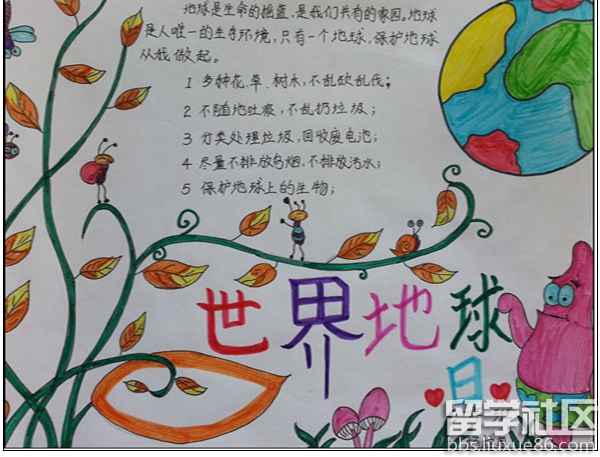 地球是生命的摇篮，是我们共有的家园。地球
是人唯一的生存环境，只有一个地球，保护地球
从我做起。
1 多种花、草、树木，不乱砍乱伐；
2 不随地吐痰，不乱扔垃圾；
3 分类处理垃圾，回收废电池；
4 尽量不排放乌烟，不排放污水；
5 保护地球上的生物；
世界地球
日
留学社区
bbs.liuxue86.com